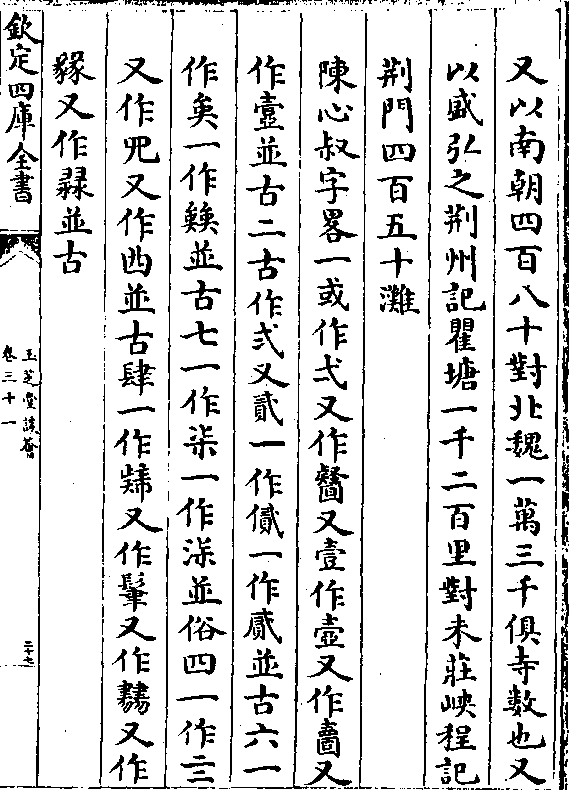 又以南朝四百八十對北魏一萬三千俱寺數也又
以盛弘之荆州記瞿塘一千二百里對未莊峽程記
荆門四百五十灘
陳心叔字畧一或作弌又作又壹作壼又作又
作壺並古二古作弍又貳一作一作並古六一
作一作並古七一作柒一作並俗四一作亖
又作又作並古肆一作又作又作又作
又作並古
欽定四庫全書
玉芝堂談薈
卷三十一
二十七